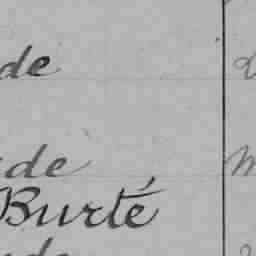 de
de
Burté